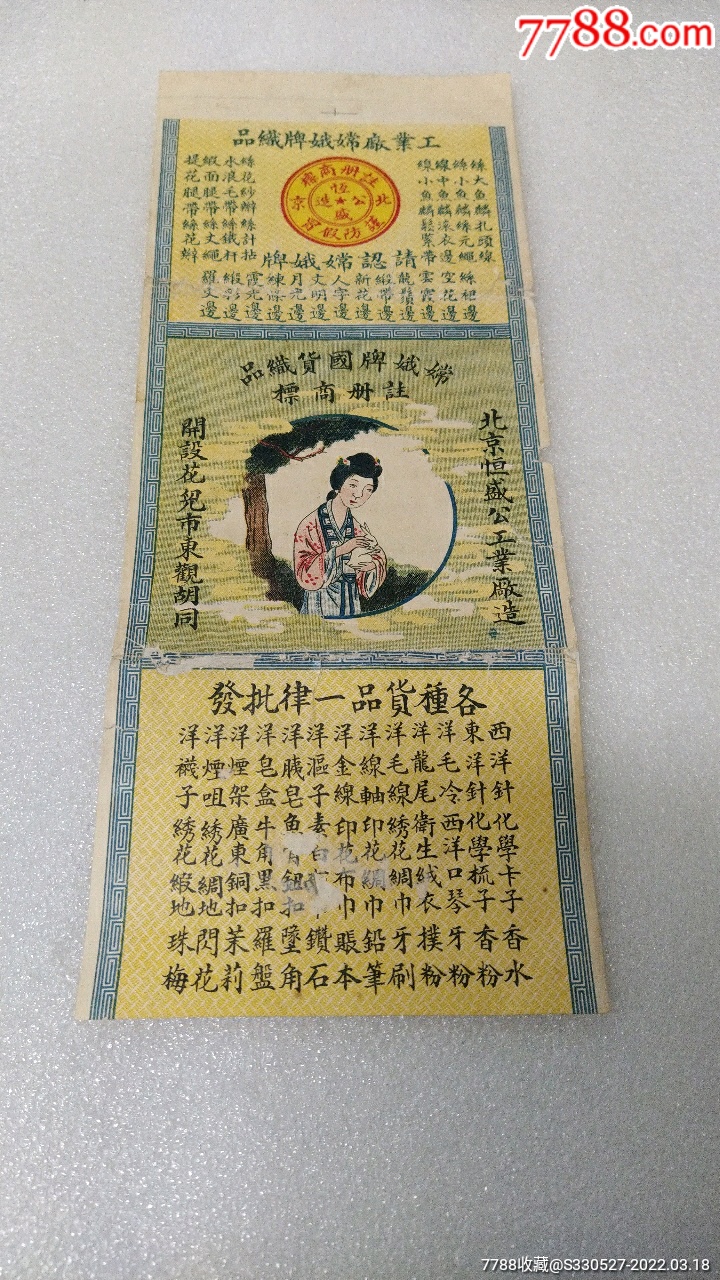 7788.com
工業廠嫦娥牌織品
絲大魚麟扎頭線
絲小魚麟絲元繩
線中魚麟滚衣邊
線小魚麟鬆緊帶
註冊商標
北京
恆盛公造
謹防假冒
絲花紗辮絲計拈
水浪毛帶絲鐵杆
緞面腿帶絲丈繩
提花腿帶絲花辮
請認嫦娥牌
絲裙邊
空花邊
雲霞邊
龍鬚邊
緞帶邊
新花邊
人字邊
文明邊
月亮邊
練條邊
霞光邊
緞彩邊
羅文邊
嫦娥牌國貨織品
註册商標
北京恒盛公工業廠造
開設花兒市東觀胡同
各種貨品一律批發
西洋針化學卡子香水
東洋針化學梳子香粉
洋毛冷西洋口琴牙粉
洋龍尾衛生絨衣撲粉
洋毛線綉花綢巾牙刷
洋線軸印花綢巾鉛筆
洋金線印花布巾賬本
洋漚子素白巾鑽石
洋胰皂魚鈕扣墜角
洋皂盒牛角黑扣羅盤
洋煙架廣東銅扣茉莉
洋煙咀綉花綢地閃花
洋襪子綉花緞地珠梅
7788收藏@S330527-2022.03.18